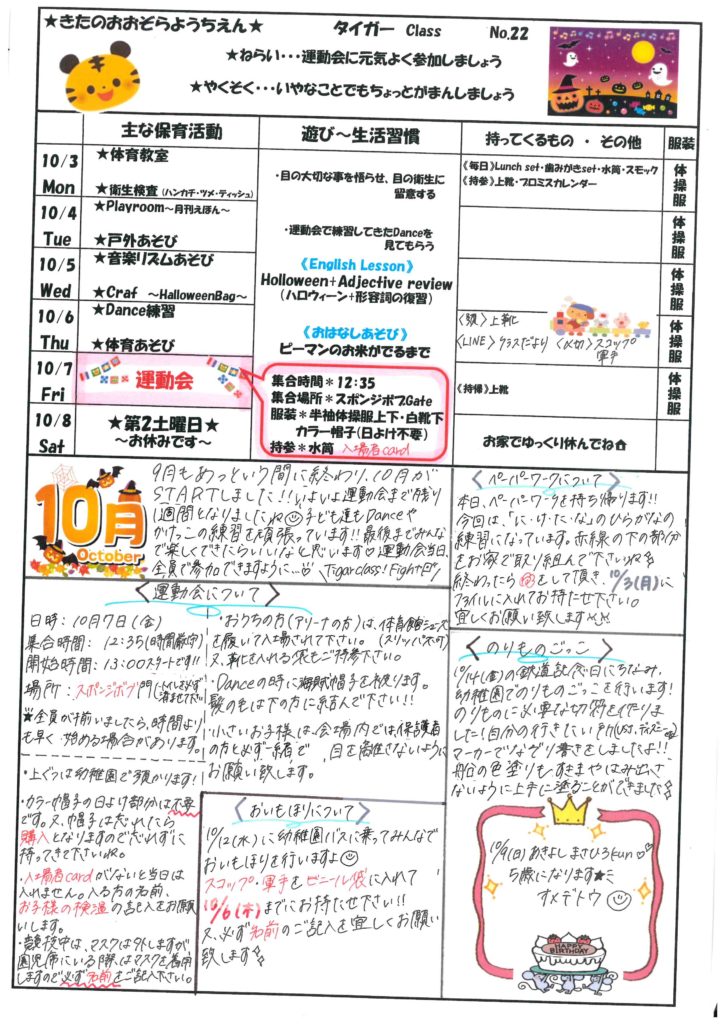 ★きたのおおぞらようちえん★ タイガー Class No.22
★ねらい・・・運動会に元気よく参加しましょう
★やくそく・・・いやなことでもちょっとがまんしましょう
主な保育活動 遊び～生活習慣 持ってくるもの ・ その他 服装
10/3 Mon
★体育教室
★衛生検査 (ハンカチ・ツメ・ティッシュ)
・目の大切な事を悟らせ、目の衛生に
留意する
《毎日》Lunch set・歯みがきset・水筒・スモック
《持参》上靴・プロミスカレンダー
体操服
10/4 Tue
★Playroom～月刊えほん～
★戸外あそび
・運動会で練習してきたDanceを
見てもらう
体操服
10/5 Wed
★音楽リズムあそび
★Craf ～HalloweenBag～
《English Lesson》
Holloween+Adjective review
(ハロウィーン+形容詞の復習)
体操服
10/6 Thu
★Dance練習
★体育あそび
《おはなしあそび》
ピーマンのお米がでるまで
上靴
〈LINE〉クラスだより 〈〆切〉スコップ
軍手
体操服
10/7 Fri
運動会
集合時間＊12:35
集合場所＊スポンジボブGate
服装＊半袖体操服上下・白靴下
カラー帽子(日よけ不要)
持参＊水筒 入場者card
《持帰》上靴
体操服
10/8 Sat
★第2土曜日★
～お休みです～
お家でゆっくり休んでね
10月
October
9月もあっという間に終わり、10月が
STARTしました!!いよいよ運動会まで残り
1週間となりましたね 子ども達もDanceや
かけっこの練習を頑張っています!!最後までみんな
で楽しくできたらいいなと思います♡運動会当日、
全員で参加できますように…
Tigarclass!Fight
〈ペーパーワークについて〉
本日、ペーパーワークを持ち帰ります!!
今回は、「に・け・た・な」のひらがなの
練習になっています。赤線の下の部分
をお家で取り組んで下さいね
終わったら をして頂き、10/3(月)に
ファイルに入れてお持たせ下さい。
宜しくお願い致します
〈運動会について〉
日時：10月7日(金)
集合時間：12:35(時間厳守)
開始時間：13:00スタートです!!
場所：スポンジボブ門
★全員が揃いましたら、時間より
も早く始める場合があります。
・上ぐつは幼稚園で預かります!
・カラー帽子の日よけ部分は不要
です。又、帽子はだれたら
購入となりますのでだれずに
持ってきて下さいね。
・入場者cardがないと当日は
入れません。入る方の名前、
お子様の検温の記入をお願
いします。
・競技中は、マスクは外しますが
園児席にいる際はマスクを着用
しますので必ず名前をご記入下さい。
・おうちの方(アリーナの方)は、体育館シューズ
を履いて入場されて下さい。(スリッパ不可)
又、靴を入れる袋もご持参下さい。
・Danceの時に海賊帽子を被ります。
髪の毛は下の方に結んで下さい!!
・小さいお子様は、会場内では、保護者
の方と必ず一緒で、目を離さないように
お願い致します。
〈おいもほりについて〉
10/12(水)に幼稚園バスに乗ってみんなで
おいもほりを行いますよ
スコップ・軍手をビニール袋に入れて
10/6(木)までにお持たせ下さい!!
又、必ず名前のご記入を宜しくお願い
致します
〈のりものごっこ〉
10/14(金)の鉄道記念日にちなみ、
幼稚園でのりものごっこを行います!
のりものに必要な切符を作りま
した!自分の行きたい所
マーカーでなぞり書きをしましたよ!!
船の色塗りもすきまやはみ出さ
ないように上手に塗ることができました
10/9(日)あきよし まさひろkun
5歳になります★
オメデトウ
HAPPY BIRTHDAY